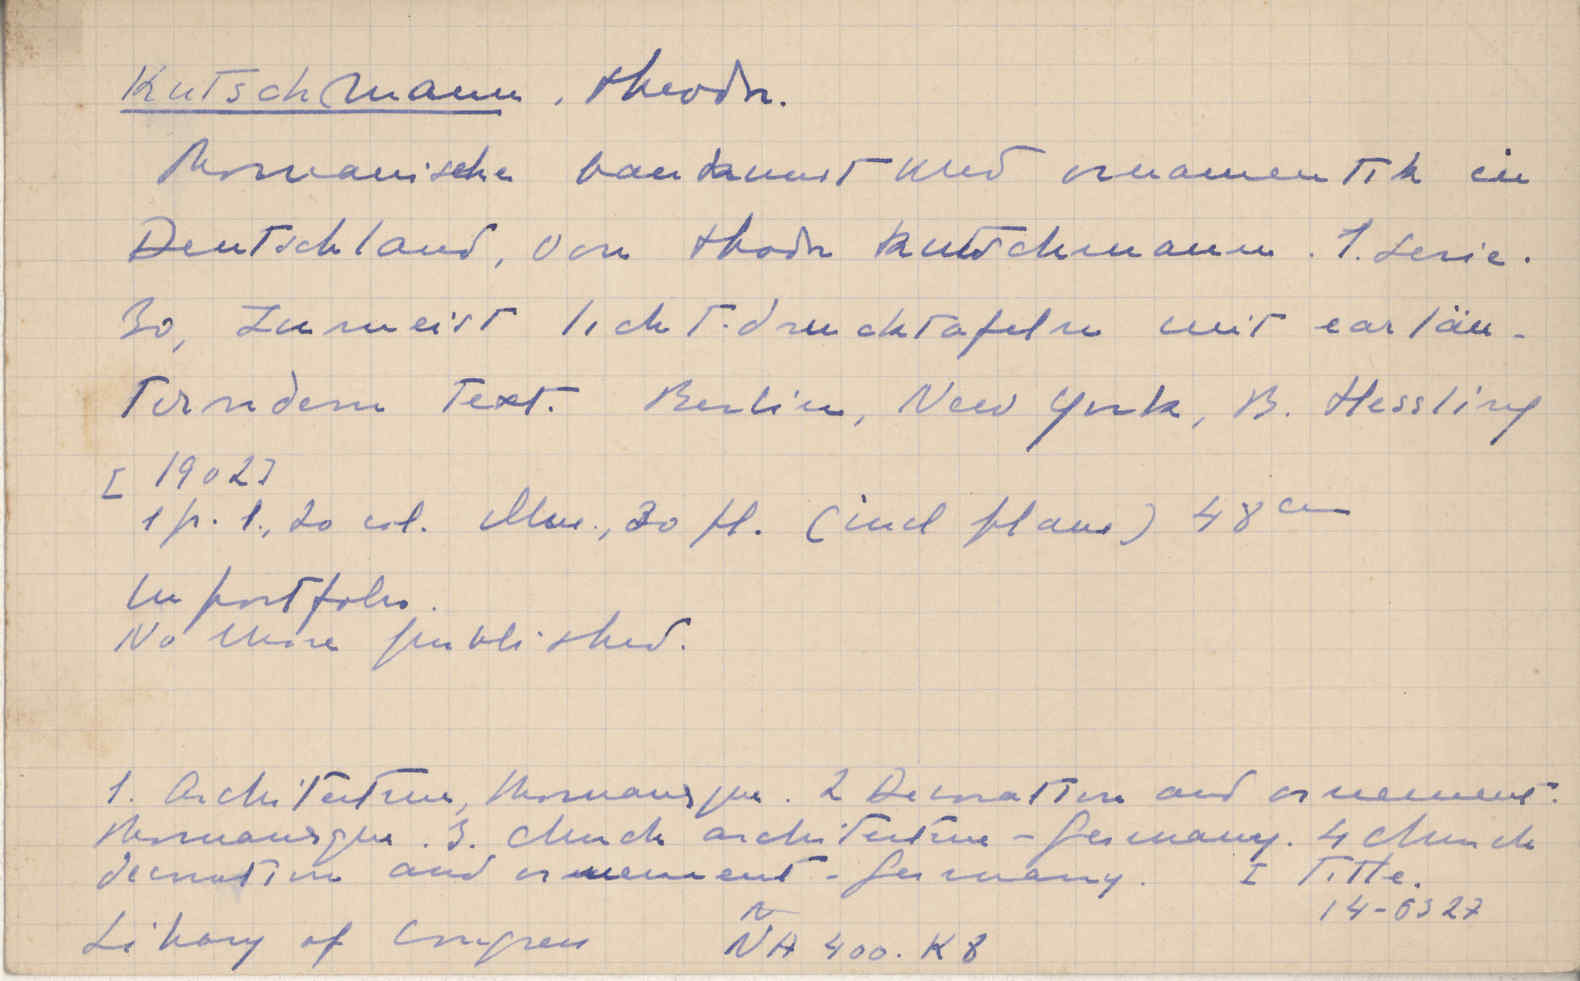 Kutschmann, Theodr.
Romanische baukunst und ornamentik in
Deutschland, von Thodr Kutschmann. 1. Serie.
30, zumeist licht-drucktafeln mit earläu-
terndem Text. Berlin, New York, B. Hessling
[1902]
1 p. l., 20 col. illus., 30 pl. (incl plans) 48 cm
In portfolio.
No more published.
1. Architecture, Romanesque. 2 Decoration and ornement.
Romanesque. 3. Church architecture - Germany. 4 Church
decoration and ornement - Germany. I Title.
14-6327
Library of Congress NA 400. K8